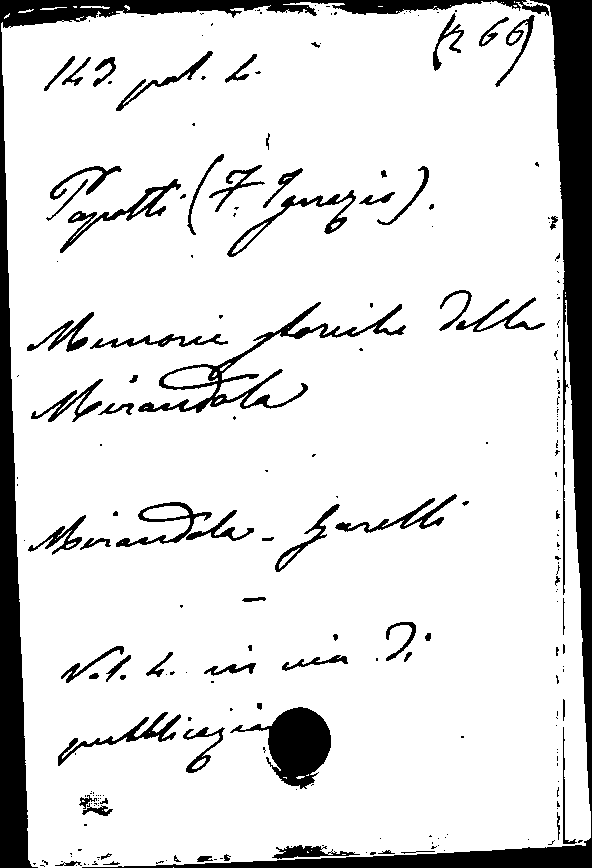 (R 66)
143. pal. 4.
Papotti (F. Ignazio).
Memorie storiche della
Mirandola
Mirandola - Garelli
—
Vol. 4. in via di
pubblicazio